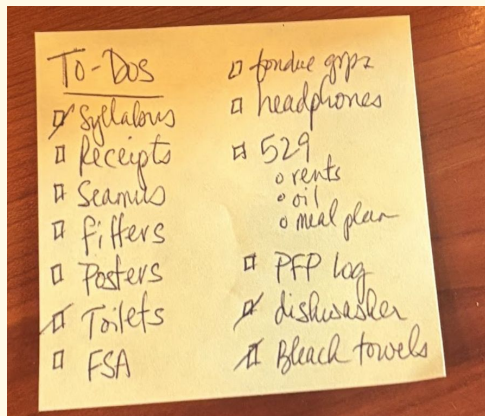 To-Dos
Syllabus
Receipts
Seamus
Filters
Posters
Toilets
FSA
fondue
headphones
529
rents
oil
meal plan
PFP log
dishwasher
Bleach towels